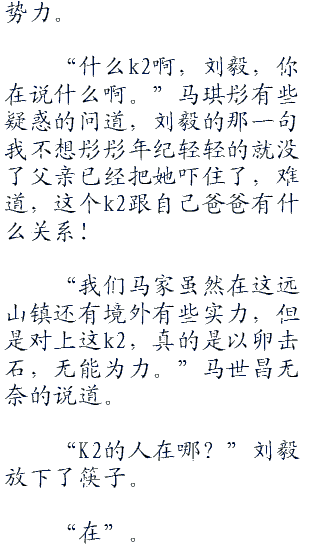 势力。
“什么k2啊，刘毅，你
在说什么啊。”马琪彤有些
疑惑的问道，刘毅的那一句
我不想彤彤年纪轻轻的就没
了父亲已经把她吓住了，难
道，这个k2跟自己爸爸有什
么关系！
“我们马家虽然在这远
山镇还有境外有些实力，但
是对上这k2，真的是以卵击
石，无能为力。”马世昌无
奈的说道。
“K2的人在哪？”刘毅
放下了筷子。
“在”。